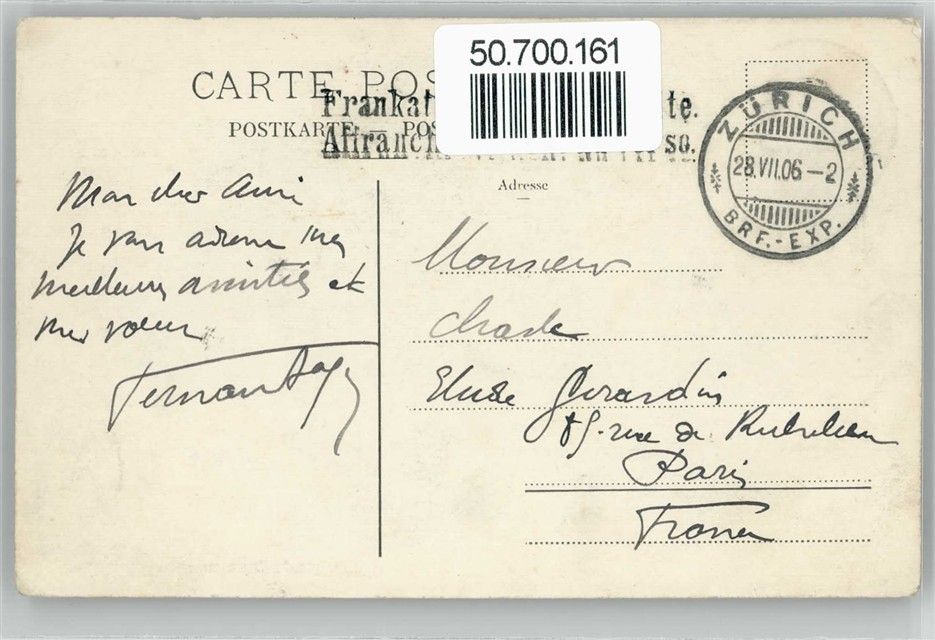 50.700.161
CARTE POS
Frankat te.
POSTKARTE — POS
Affranch so.
ZÜRICH
28.VII.06–2
BRF.-EXP.
Adresse
Mon cher Ami
Je vous adresse mes
meilleures amitiés et
mes vœux
Fernand
Monsieur
Charles
Girardin
rue de Richelieu
Paris
France